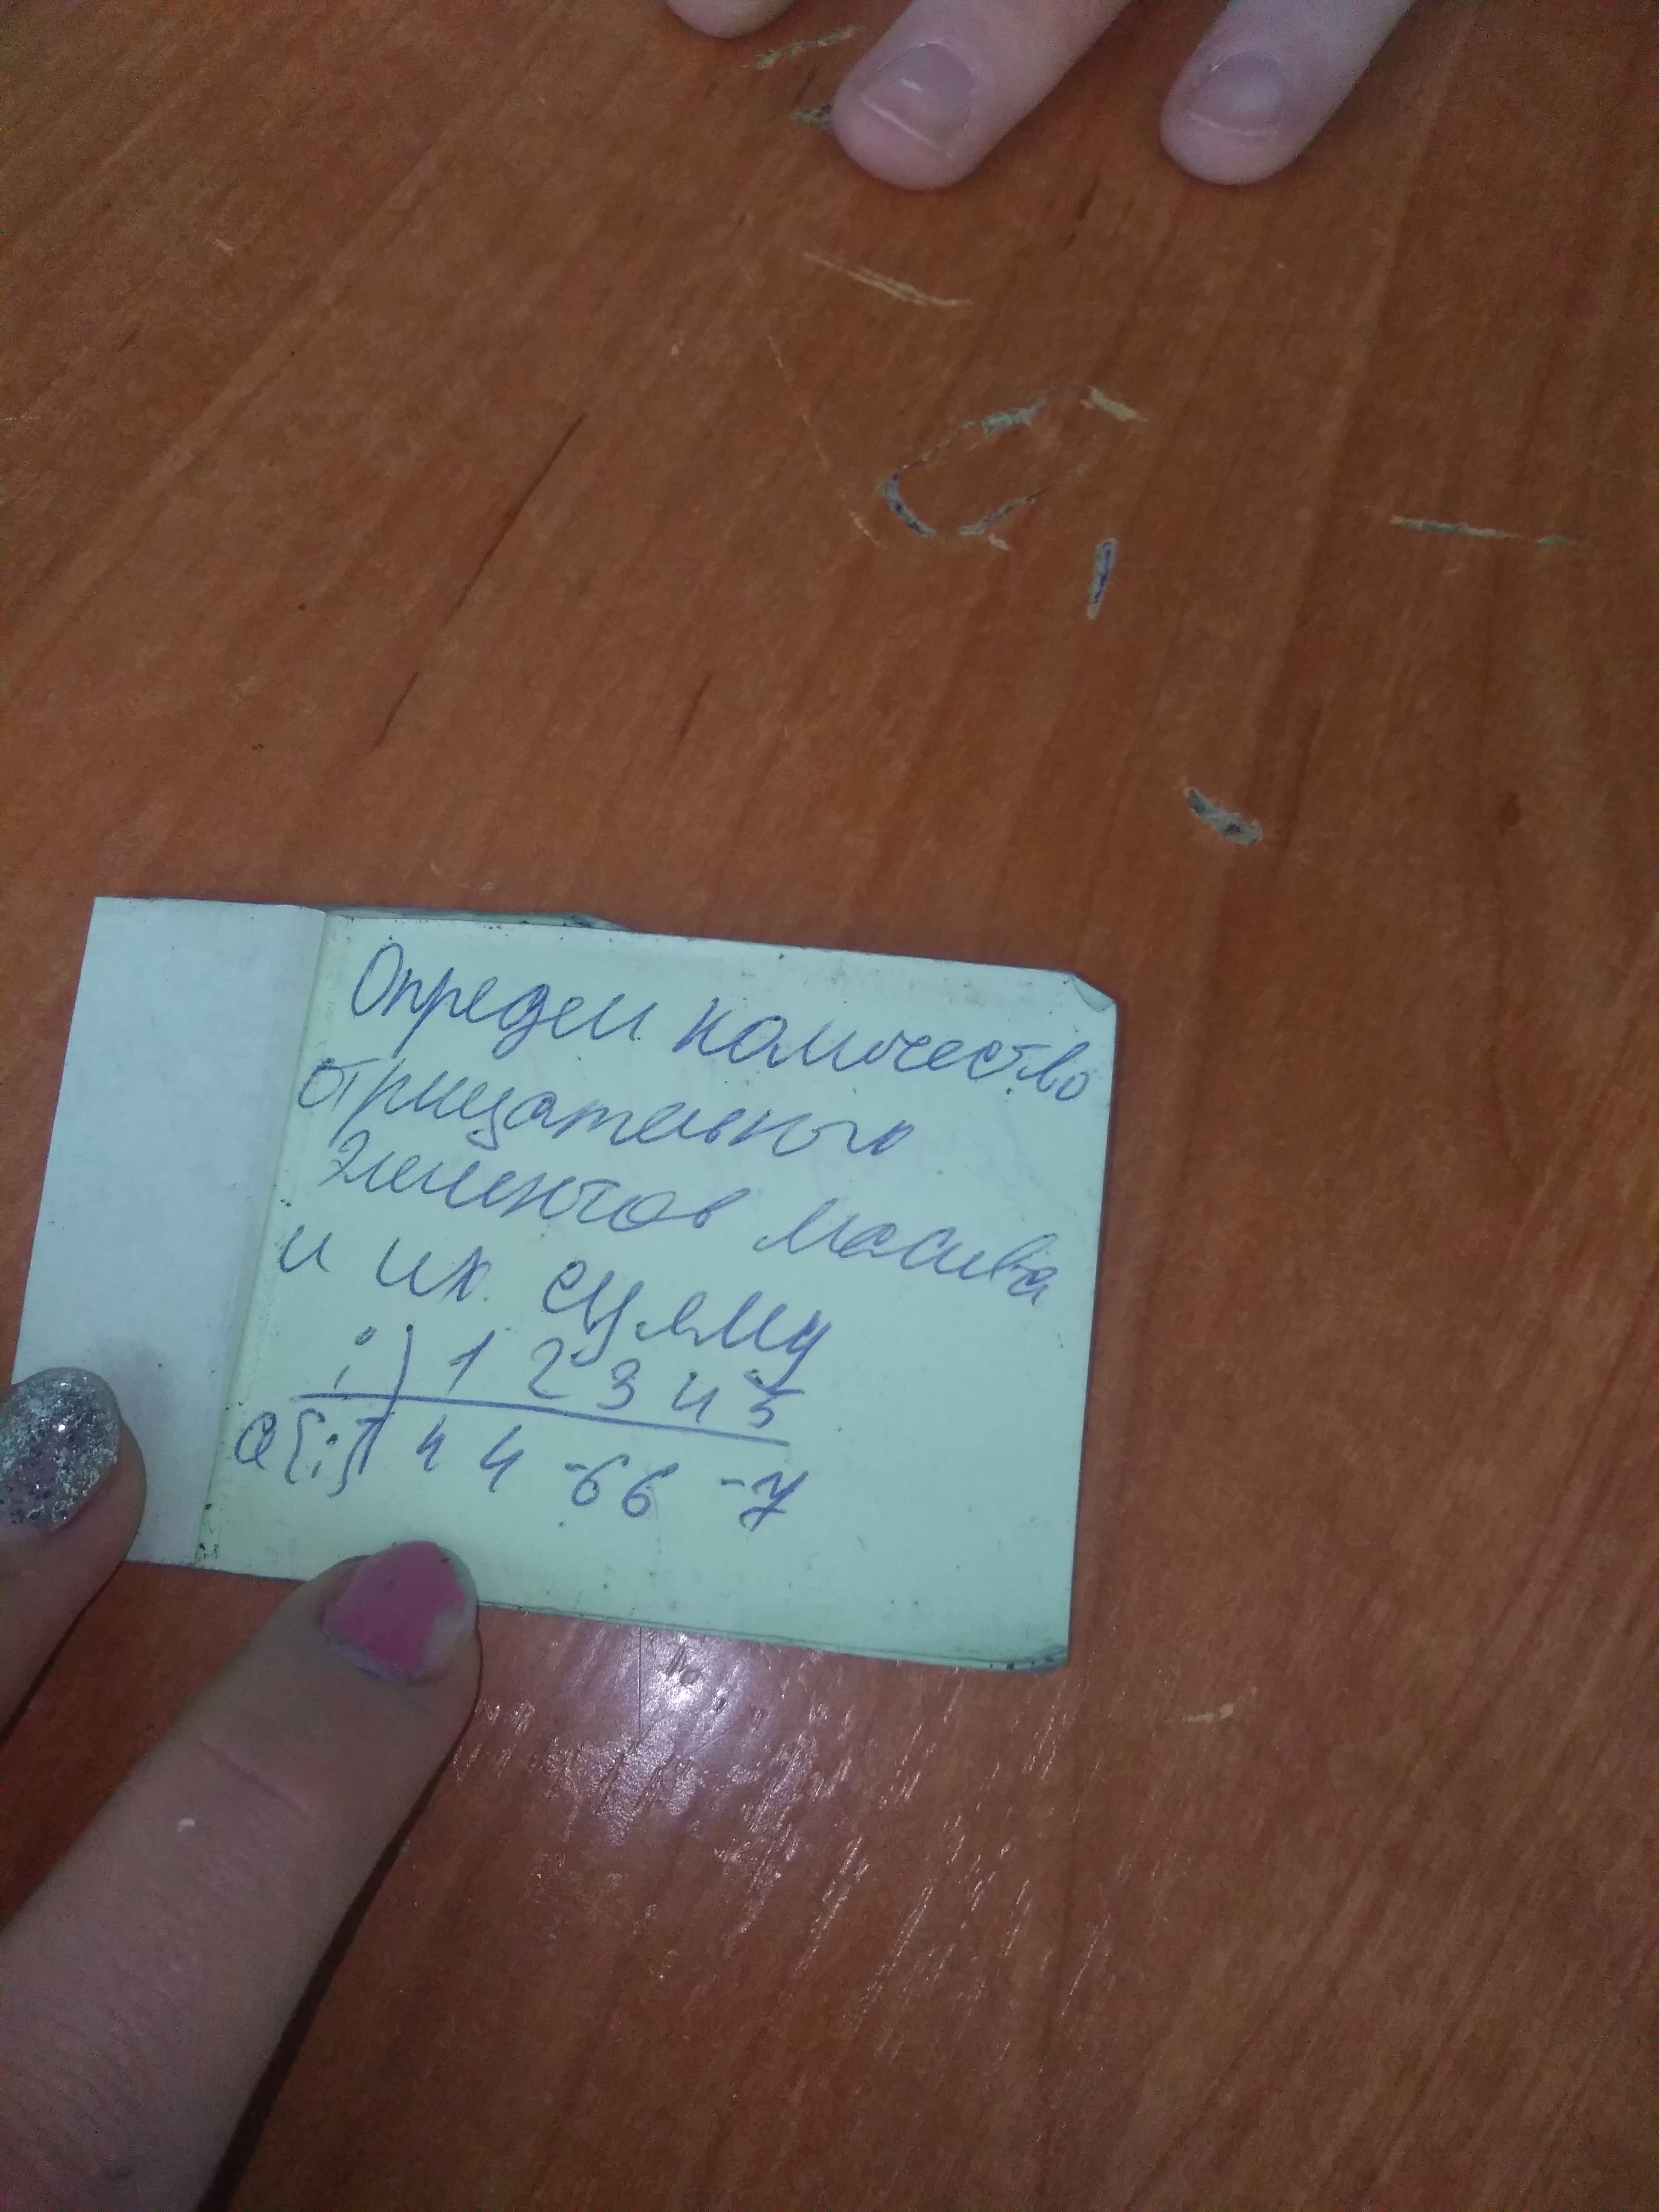 Определи количество
отрицательного
элементов масива
и их сумму
i) 1 2 3 4 5
a[i] 4 4 -6 6 -7